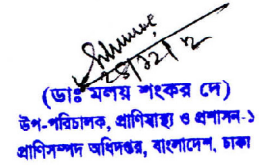 ২০/১২/১
(ডাঃ মলয় শংকর দে)
উপ-পরিচালক, প্রাণিস্বাস্থ্য ও প্রশাসন-১
প্রাণিসম্পদ অধিদপ্তর, বাংলাদেশ, ঢাকা